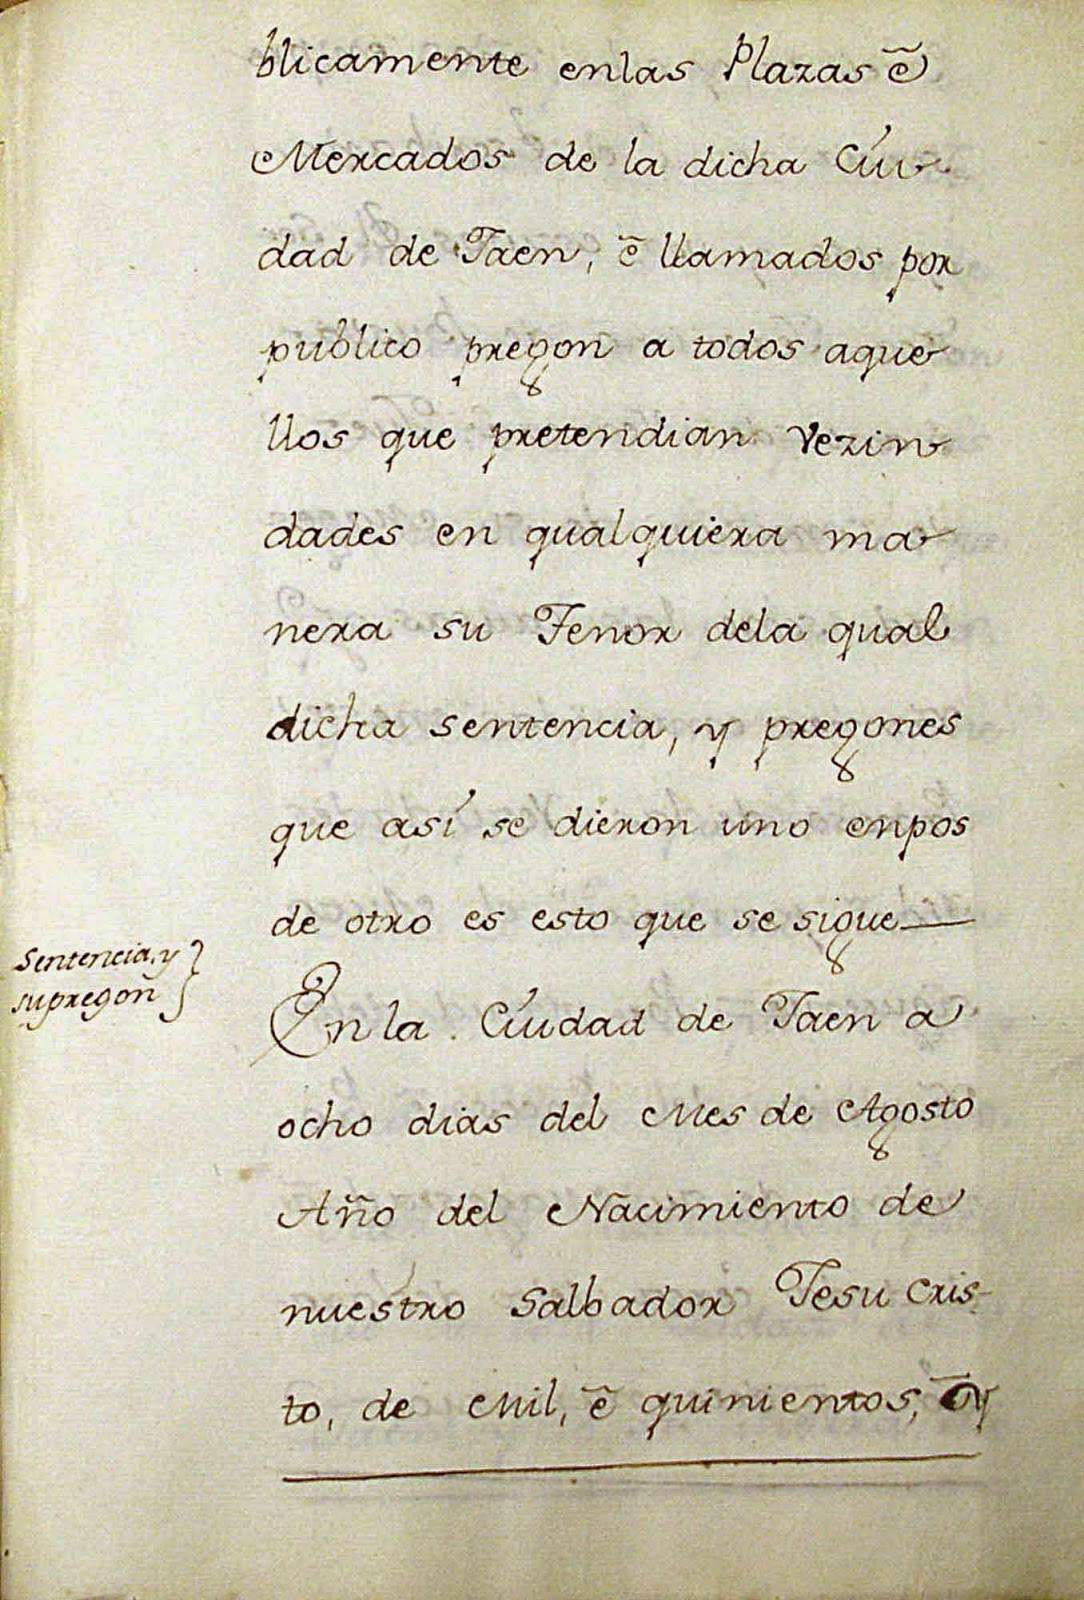 blicamente enlas Plazas ẽ
Mercados de la dicha Ciu
dad de Jaen, ẽ llamados por
publico pregon a todos aque
llos que pretendian vezin
dades en qualquiera ma
nera su Tenor dela qual
dicha sentencia, y pregones
que así se dieron uno enpos
de otro es esto que se sigue
Sentencia, y
su pregon
En la Ciudad de Jaen a
ocho dias del Mes de Agosto
Año del Nacimiento de
nuestro Salbador Jesu Cris-
to, de Mil, ẽ quinientos,